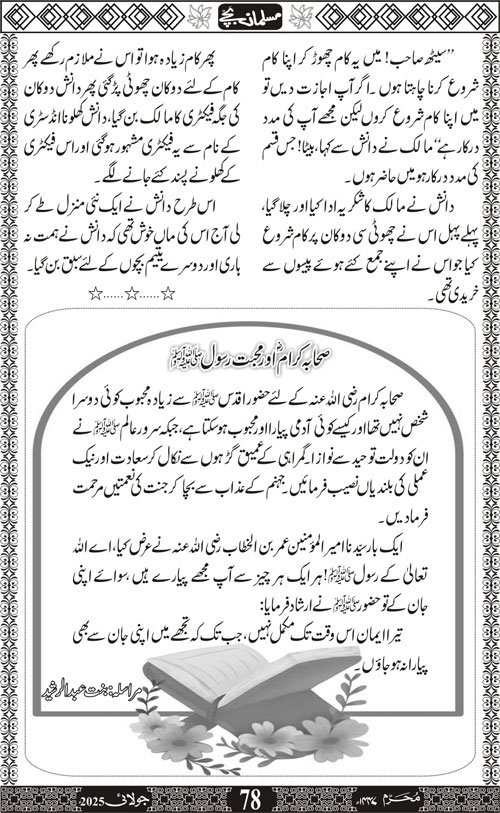 مسلمان بچے
’’سیٹھ صاحب! میں یہ کام چھوڑ کر اپنا کام
شروع کرنا چاہتا ہوں ۔ اگر آپ اجازت دیں تو
میں اپنا کام شروع کروں لیکن مجھے آپ کی مدد
درکار ہے‘‘ مالک نے دانش سے کہا، بیٹا! جس قسم
کی مدد درکار ہو میں حاضر ہوں۔
دانش نے مالک کا شکریہ ادا کیا اور چلا گیا،
پہلے پہل اس نے چھوٹی سی دوکان پر کام شروع
کیا جو اس نے اپنے جمع کئے ہوئے پیسوں سے
خریدی تھی۔
پھر کام زیادہ ہوا تو اس نے ملازم رکھے پھر
کام کے لئے دوکان چھوٹی پڑ گئی پھر دانش دوکان
کی جگہ فیکٹری کا مالک بن گیا، دانش کھلونا انڈسٹری
کے نام سے یہ فیکٹری مشہور ہو گئی اور اس فیکٹری
کے کھلونے پسند کئے جانے لگے۔
اس طرح دانش نے ایک نئی منزل طے کر
لی آج اس کی ماں خوش تھی کہ دانش نے ہمت نہ
ہاری اور دوسرے یتیم بچوں کے لئے سبق بن گیا۔
☆......☆......☆
صحابہ کرامؓ اور محبت رسول ﷺ
صحابہ کرام رضی اللہ عنہ کے لئے حضور اقدس ﷺ سے زیادہ محبوب کوئی دوسرا
شخص نہیں تھا اور کیسے کوئی آدمی پیارا اور محبوب ہو سکتا ہے، جبکہ سرور عالم ﷺ نے
ان کو دولت توحید سے نوازا۔ گمراہی کے عمیق گڑھوں سے نکال کر سعادت اور نیک
عملی کی بلندیاں نصیب فرمائیں۔ جہنم کے عذاب سے بچا کر جنت کی نعمتیں مرحمت
فرما دیں۔
ایک بار سیدنا امیر المؤمنین عمر بن الخطاب رضی اللہ عنہ نے عرض کیا، اے اللہ
تعالیٰ کے رسول ﷺ! ہر ایک ہر چیز سے آپ مجھے پیارے ہیں، سوائے اپنی
جان کے تو حضور ﷺ نے ارشاد فرمایا:
تیرا ایمان اس وقت تک مکمل نہیں، جب تک کہ تجھے میں اپنی جان سے بھی
پیارا نہ ہو جاؤں۔
مراسلہ: بنت عبدالرشید
محرم ۱۴۴۷ھ
78
جولائی 2025